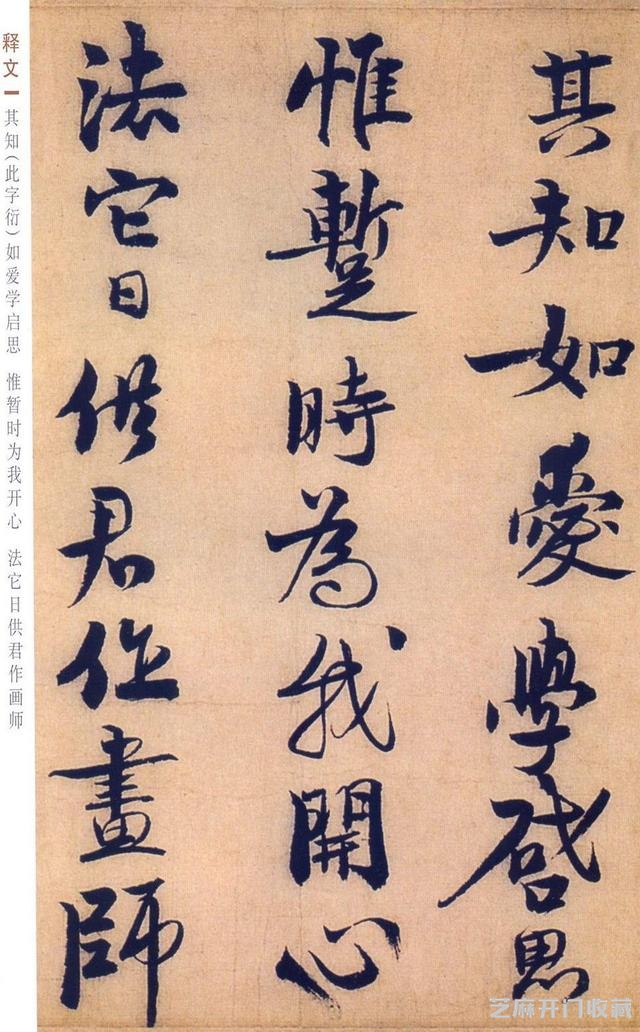 其知如愛學啓思
惟蹔時為我開心
法它日供君作畫師
释文 其知(此字衍)如爱学启思 惟暂时为我开心 法它日供君作画师
芝麻开门收藏